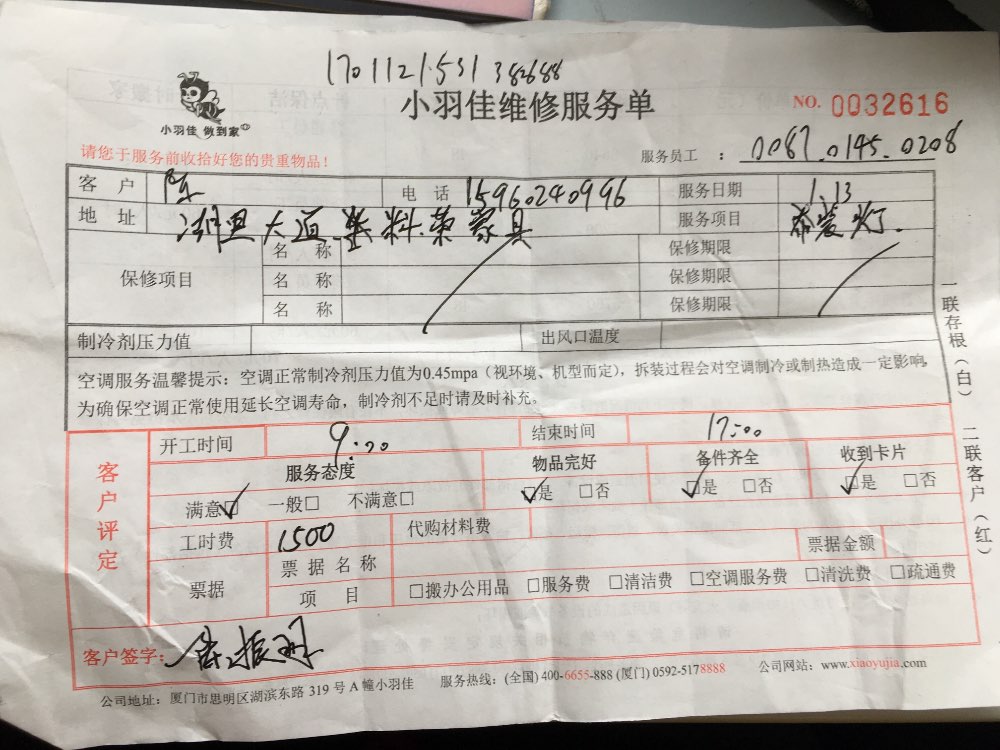 1701121531382688
小羽佳 做到家
小羽佳维修服务单
NO. 0032616
请您于服务前收拾好您的贵重物品！
服务员工 ： 0087.0145.0208
客 户 陈 电 话 15960240996 服务日期 1.13
地 址 大道 家具 服务项目 装灯
保修项目 名 称 保修期限
名 称 保修期限
名 称 保修期限
制冷剂压力值 出风口温度
空调服务温馨提示：空调正常制冷剂压力值为0.45mpa（视环境、机型而定），拆装过程会对空调制冷或制热造成一定影响，
为确保空调正常使用延长空调寿命，制冷剂不足时请及时补充。
客户评定
开工时间 9:20 结束时间 17:00
服务态度 物品完好 备件齐全 收到卡片
满意□ 一般□ 不满意□ □是 □否 □是 □否 □是 □否
工时费 1500 代购材料费
票据 票 据 名 称 票据金额
项 目 □搬办公用品 □服务费 □清洁费 □空调服务费 □清洗费 □疏通费
客户签字：
公司地址：厦门市思明区湖滨东路 319 号 A 幢小羽佳 服务热线：(全国) 400-6655-888 (厦门) 0592-5178888 公司网站：www.xiaoyujia.com
一联存根（白） 二联客户（红）